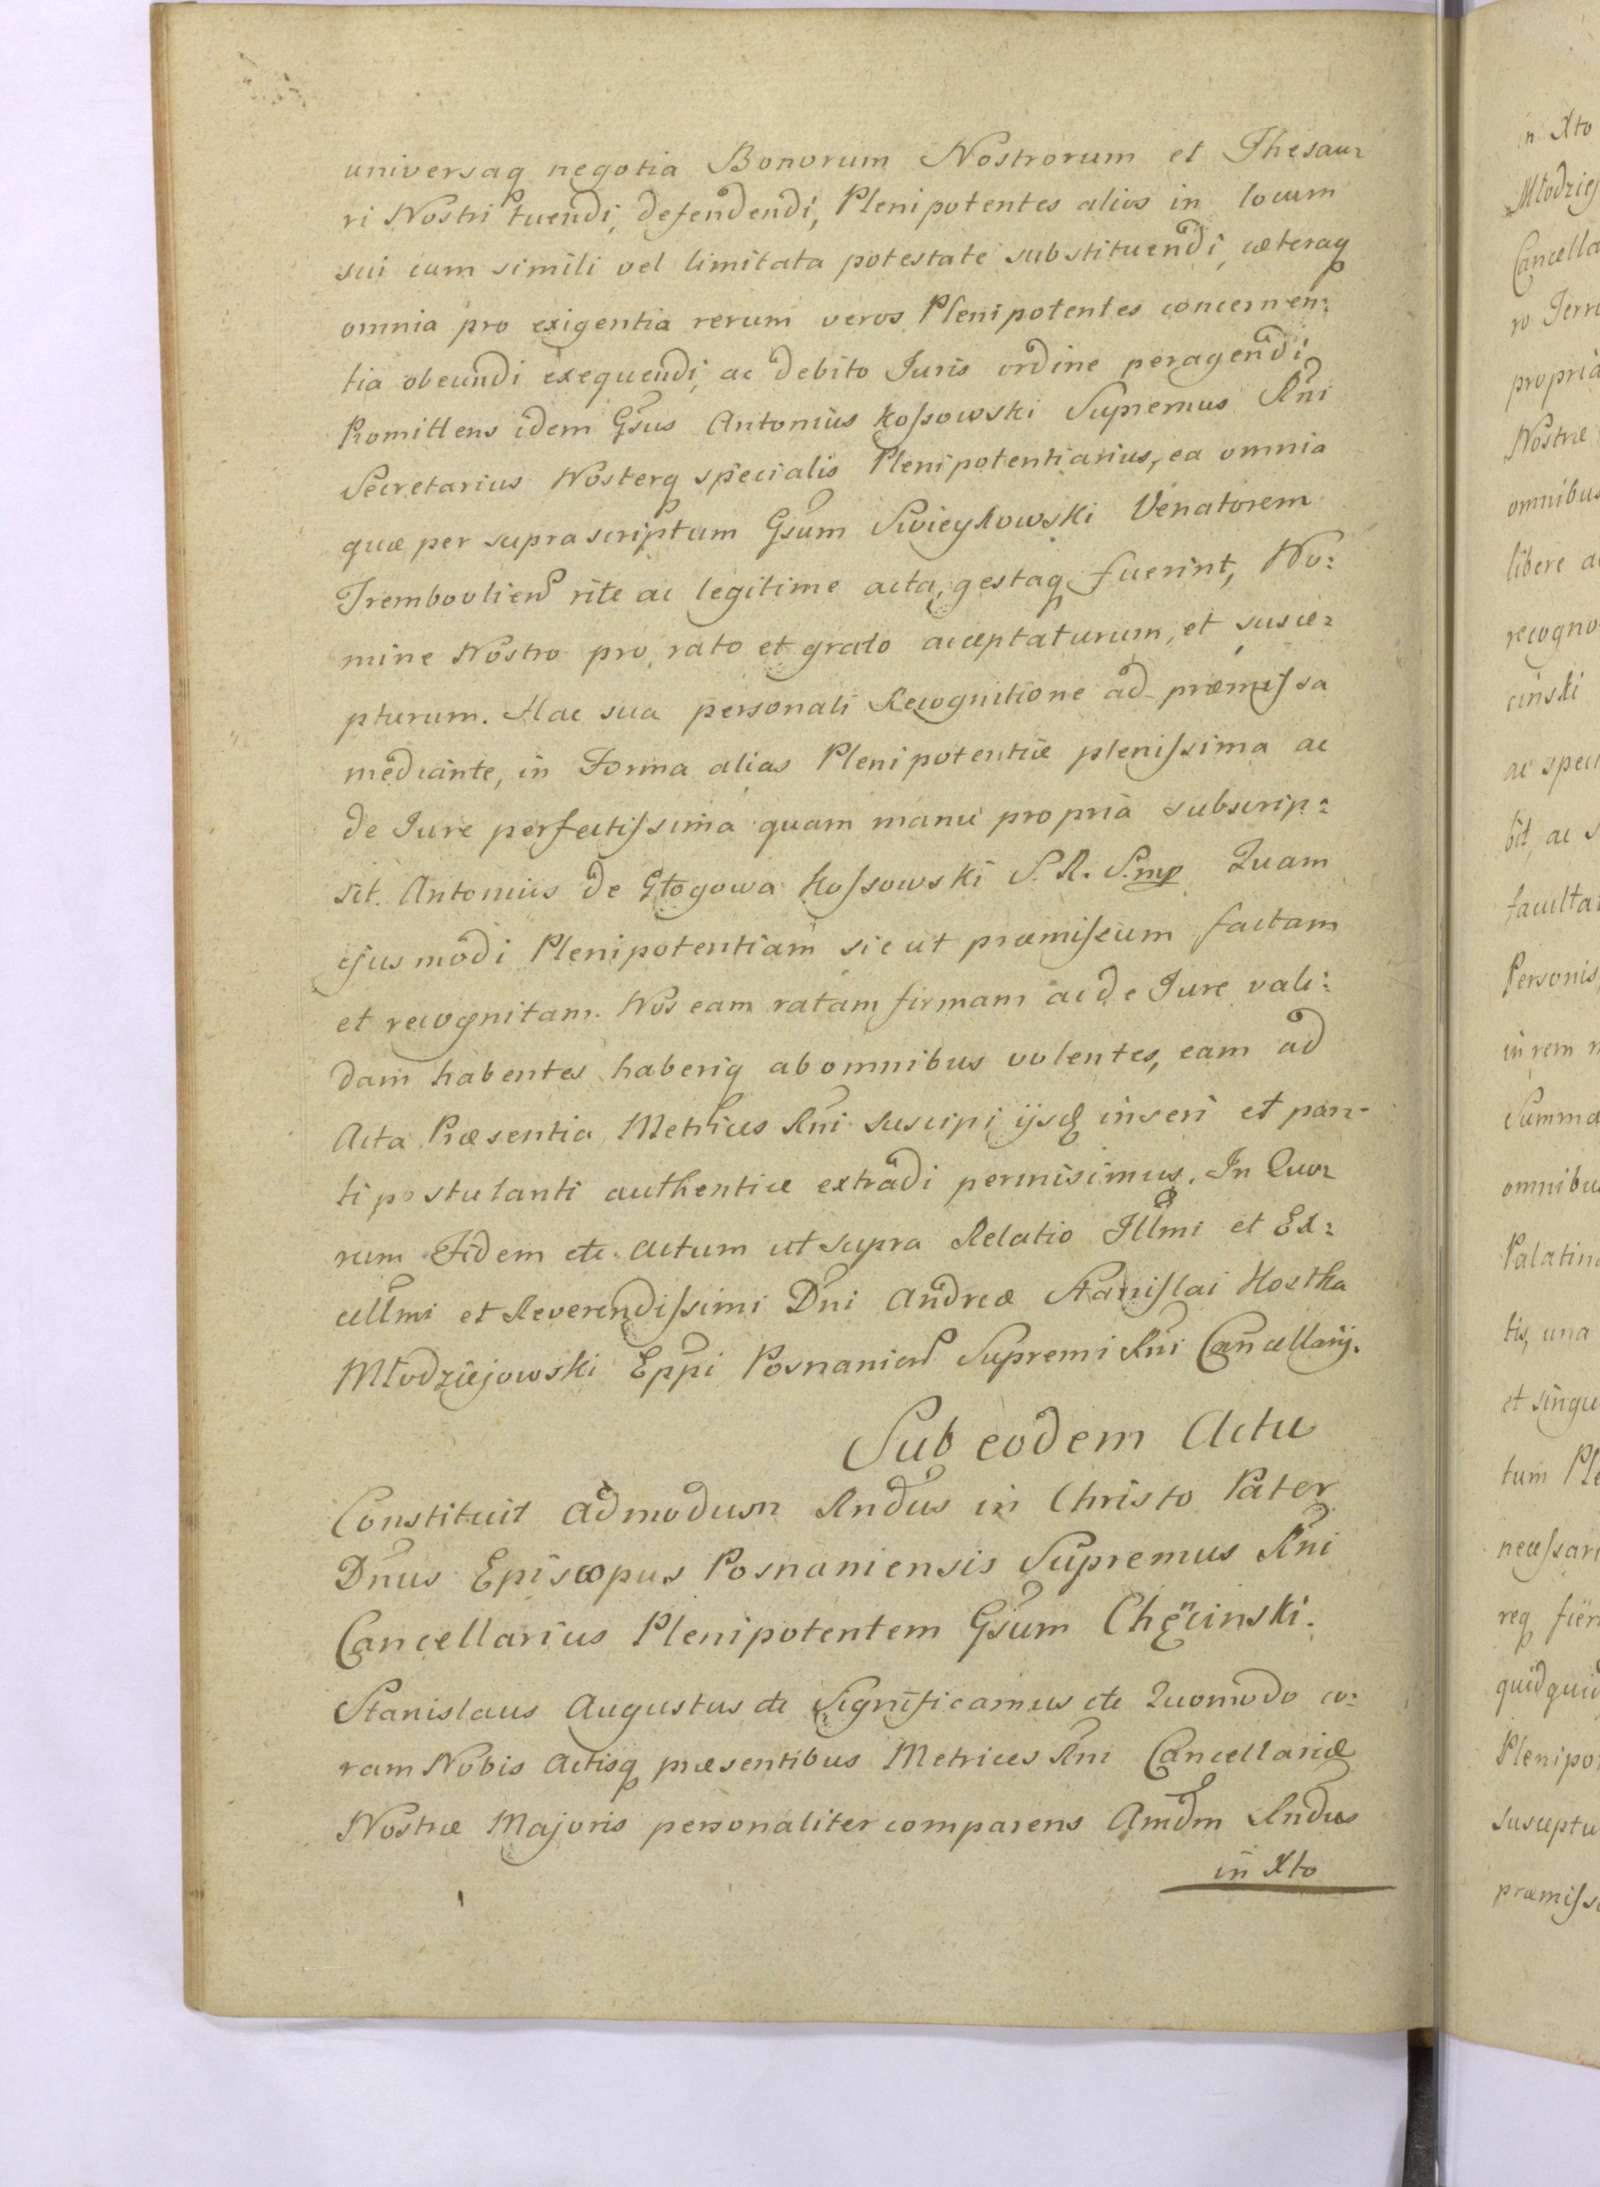 universaq negotia Bonorum Nostrorum et Thesau:
ri Nostri tuendi, defendendi, Plenipotentes alios in locum
sui cum simili vel limitata potestate substituendi, cæteraq
omnia pro exigentia rerum veros Plenipotentes concernen:
tia obeundi exequendi, ac debito Iuris ordine peragendi
Promittens idem Gsus Antonius Kossowski Supremus Rni
Secretarius Nosterq specialis Plenipotentiarius, ea omnia
quæ per suprascriptum Gsum Swieykowski Venatorem
Tremboulien rite ac legitime acta, gestaq fuerint, No:
mine Nostro pro rato et grato acceptaturum, et susce:
pturum. Hac sua personali Recognitione ad præmissa
mediante, in Forma alias Plenipotentiæ plenissima ac
de Iure perfectissima quam manu propria subscrip:
sit. Antonius de Głogowa Kossowski S. R. S. mp Quam
ejusmodi Plenipotentiam sic ut præmissum factam
et recognitam. Nos eam ratam firmam ac de Iure vali:
dam habentes haberiq ab omnibus volentes, eam ad
Acta Præsentia Metrices Rni suscipi ijsq inseri et par:
ti postulanti authentice extradi permisimus. In Quo:
rum Fidem etc Actum ut supra Relatio Illmi et Ex:
cellmi et Reverendissimi Dni Andreæ Stanislai Kostka
Młodziejowski Eppi Posnanien Supremi Rni Cancellarij.
Sub eodem Actu
Constituit admodum Rndus in Christo Pater
Dnus Episcopus Posnaniensis Supremus Rni
Cancellarius Plenipotentem Gsum Chęcinski.
Stanislaus Augustus etc Significamus etc Quomodo co:
ram Nobis Actisq præsentibus Metrices Rni Cancellariæ
Nostræ Majoris personaliter comparens Amdm Rndus
in Xto
in Xto
Młodziej
Cancella
ro Terr
propria
Nostræ
omnibus
libere a
recogno
cinski
ac speci
bit, ac s
facultat
Personis
in rem
Summa
omnibu
Palatina
tis, una
et singu
tum Ple
necessari
req fier
quidquid
Plenipo
susceptu
præmiss